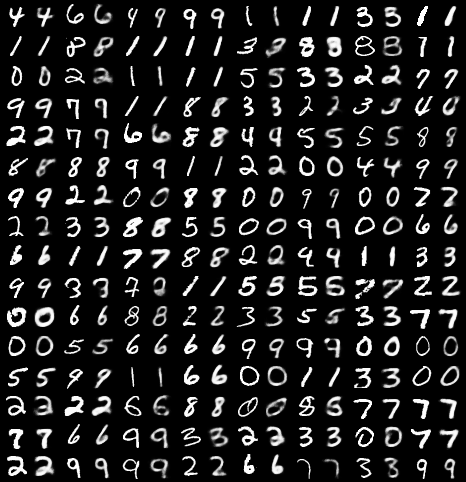 4 4 6 6 4 9 9 9 1 1 1 1 3 3 1 1
1 1 8 8 1 1 1 1 3 3 8 8 8 8 7 1
0 0 2 2 1 1 1 1 5 5 3 3 2 2 7 7
9 9 7 7 1 1 8 8 3 3 2 2 3 3 4 0
2 2 7 7 6 6 8 8 4 4 5 5 5 5 8 8
8 8 8 8 9 9 1 1 2 2 0 0 4 4 9 9
9 9 2 2 0 0 8 8 0 0 9 9 0 0 7 7
2 2 3 3 8 8 5 5 0 0 9 9 0 0 6 6
6 6 1 1 7 7 8 8 2 2 4 4 1 1 3 3
9 9 3 3 7 2 1 1 5 5 5 5 7 7 2 2
0 0 6 6 8 8 2 2 3 3 5 5 3 3 7 7
0 0 5 5 6 6 6 6 9 9 9 9 0 0 0 0
5 5 9 9 1 1 6 6 0 0 1 1 3 3 0 0
2 2 2 2 6 6 8 8 0 0 8 6 7 7 7 7
7 7 6 6 9 9 3 3 2 2 3 3 0 0 7 7
2 2 9 9 9 9 2 2 6 6 7 7 3 3 9 9